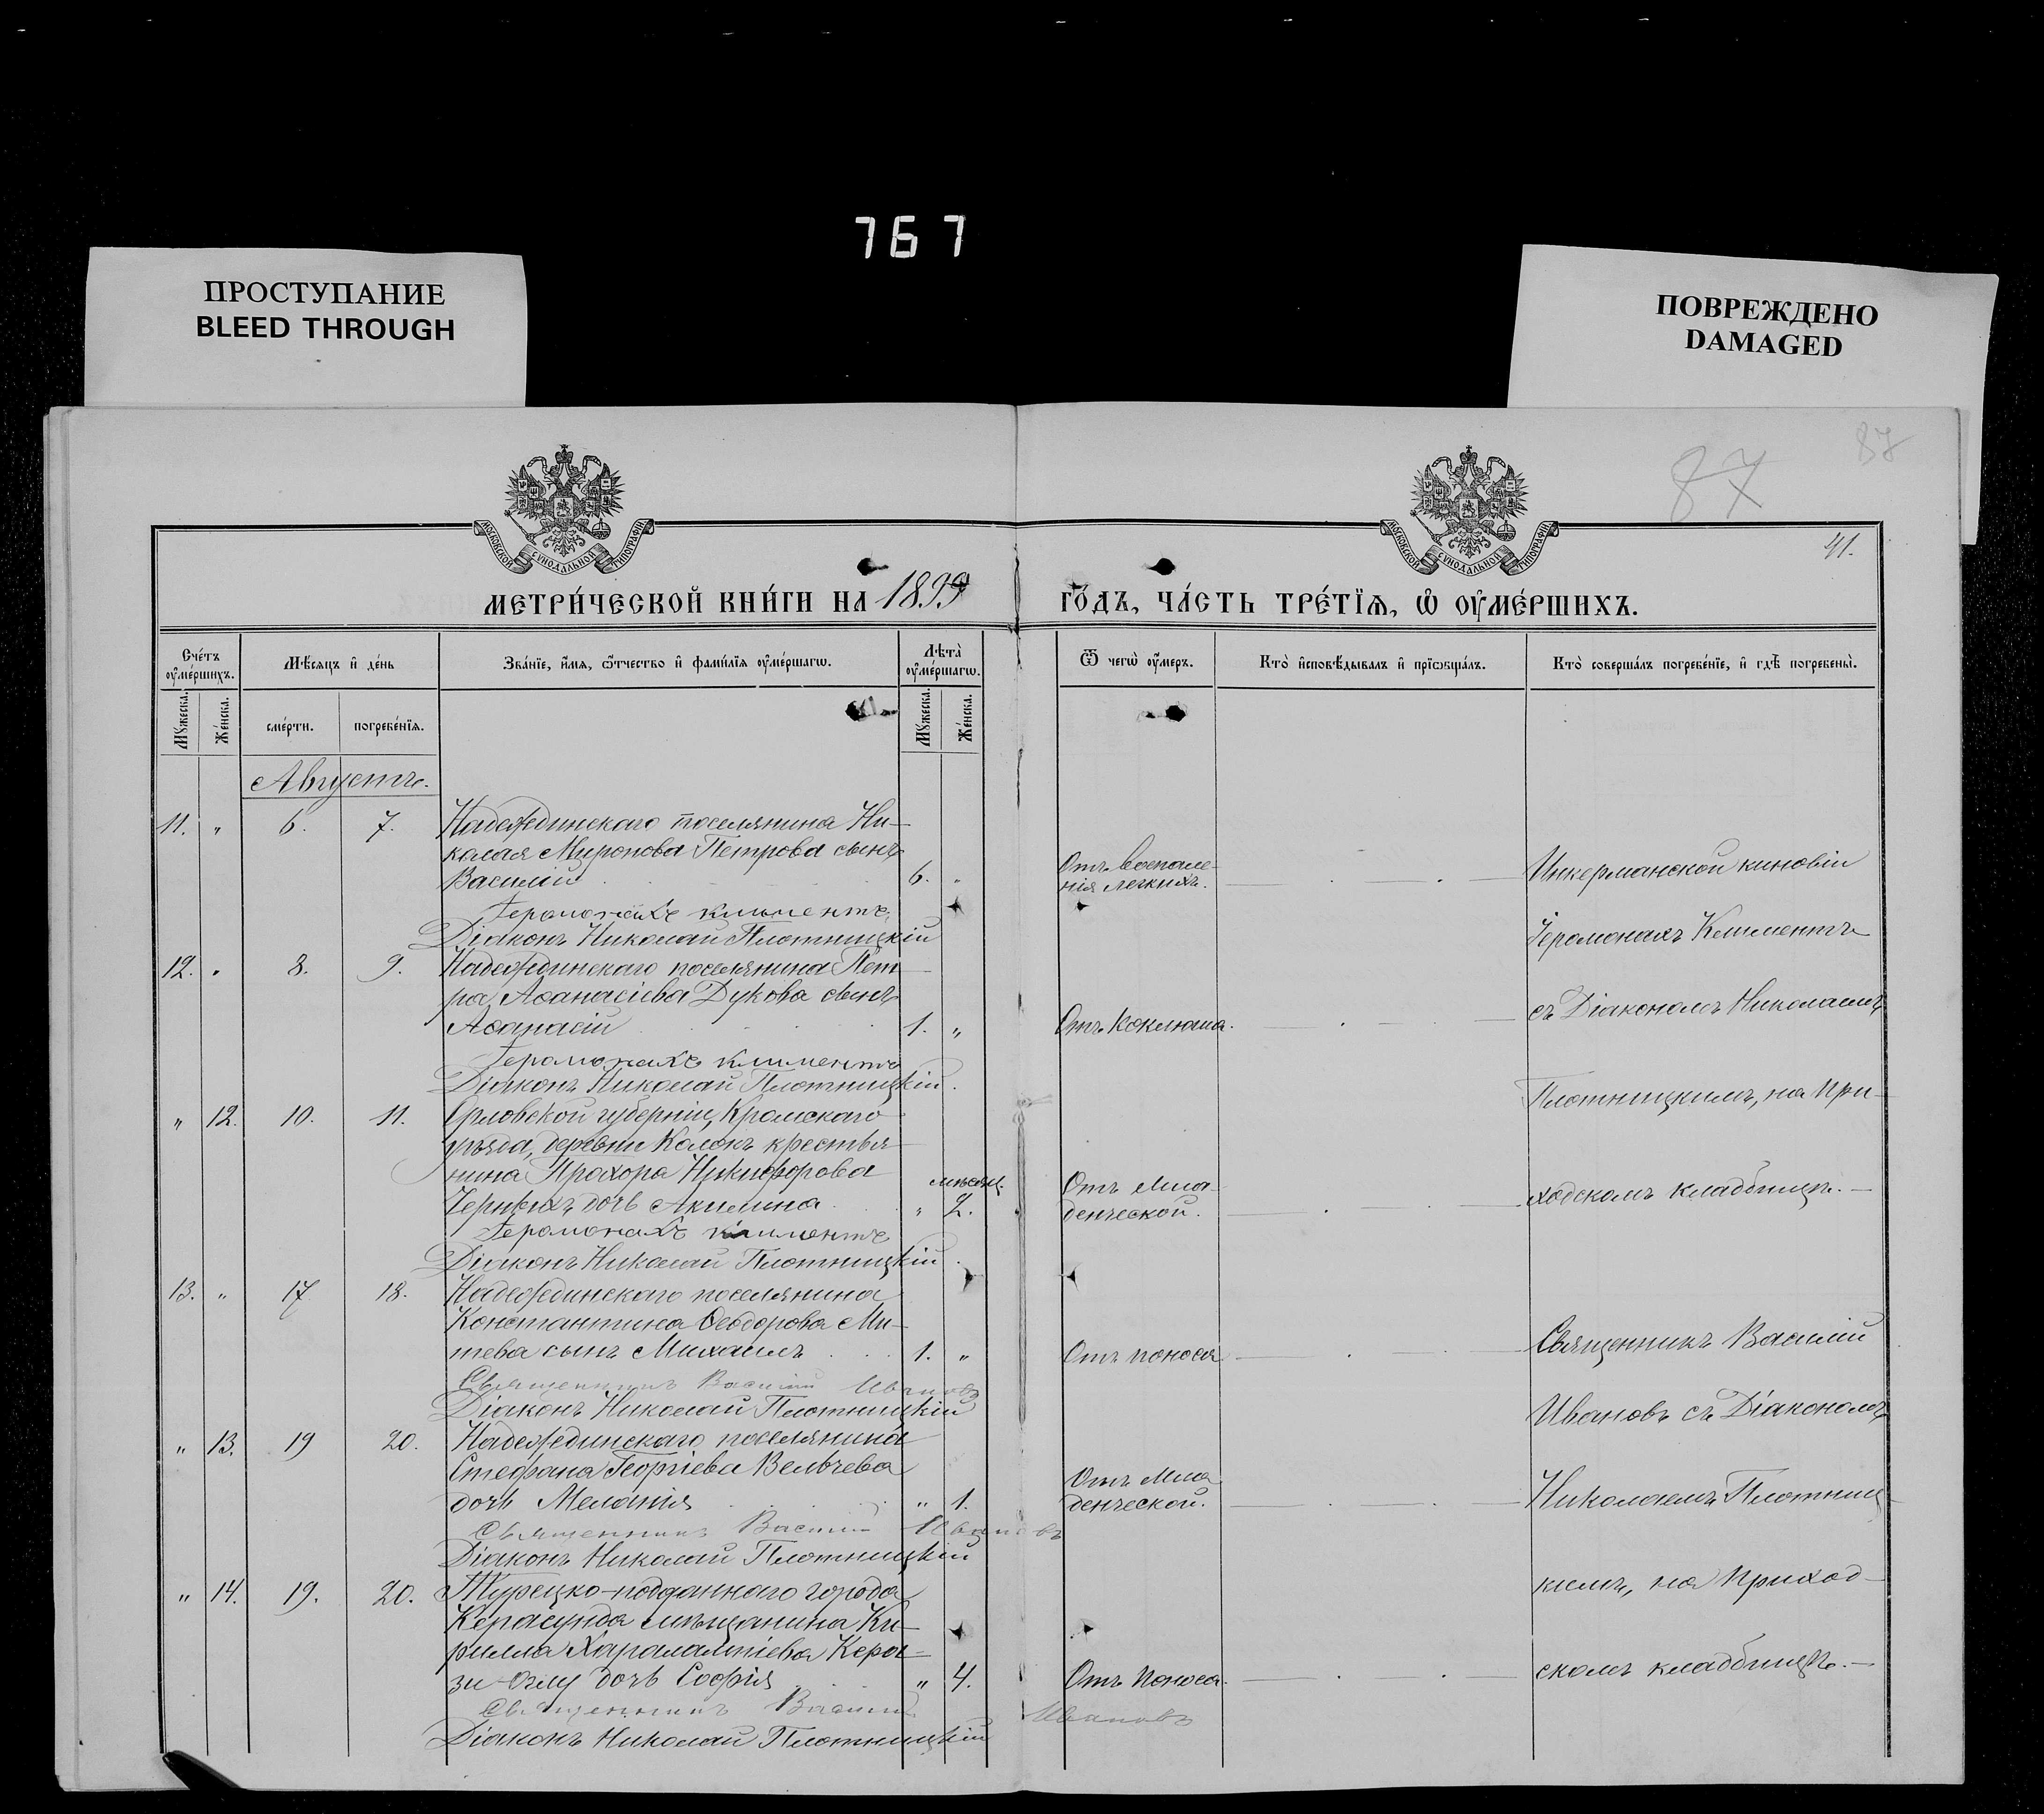 767
ПРОСТУПАНИЕ
BLEED THROUGH
ПОВРЕЖДЕНО
DAMAGED
87
87
41.
МОСКОВСКОЙ СѴНОДАЛЬНОЙ ТИПОГРАФІИ
МОСКОВСКОЙ СѴНОДАЛЬНОЙ ТИПОГРАФІИ
МЕТРИ́ЧЕСКОЙ КНИ́ГИ НА 1899 ГО́ДЪ, ЧА́СТЬ ТРЕ́ТЇѦ, Ѡ҆ ОУ҆МЕ́РШИХЪ.
Сче́тъ оу҆ме́ршихъ.
Мѣ́сяцъ и҆ де́нь
Зва́нїе, и҆́мѧ, ѻ҆́тчество и҆ фами́лїѧ оу҆ме́ршагѡ.
Лѣта̀ оу҆ме́ршагѡ.
Ѿ чегѡ̀ оу҆́меръ.
Кто̀ и҆сповѣ́дывалъ и҆ прїѡбща́лъ.
Кто̀ соверша́лъ погребе́нїе, и҆ гдѣ̀ погребены̀.
Мꙋжеска.
Же́нска.
сме́рти.
погребе́нїѧ.
Мꙋжеска.
Же́нска.
Августъ.
11. " 6. 7. Надеждинскаго поселянина Ни-
колая Миронова Петрова сынъ
Василій 6. " Отъ воспале-
нія легкихъ.
Инкерманской киновіи
Іеромонахъ Климентъ
Діаконъ Николай Плотницкій
Іеромонахъ Климентъ
12. " 8. 9. Надеждинскаго поселянина Пет-
ра Аѳанасіева Дукова сынъ
Аѳанасій 1. " Отъ коклюша.
съ Діакономъ Николаемъ
Іеромонахъ Климентъ
Діаконъ Николай Плотницкій.
Плотницкимъ, на при-
" 12. 10. 11. Орловской губерніи, Кромскаго
уѣзда, деревни Колокъ крестья-
нина Прохора Никифорова
Черныхъ дочь Акилина " мѣсяц. 2. Отъ мла-
денческой.
ходскомъ кладбищѣ.
Іеромонахъ Климентъ
Діаконъ Николай Плотницкій.
13. " 17 18. Надеждинскаго поселянина
Константина Ѳеодорова Ми-
тева сынъ Михаилъ 1. " Отъ поноса
Священникъ Василій
Священникъ Василій Ивановъ
Діаконъ Николай Плотницкій
Ивановъ съ Діакономъ
" 13. 19 20. Надеждинскаго поселянина
Стефана Георгіева Вельчева
дочь Меланія " 1. Отъ мла-
денческой.
Николаемъ Плотниц-
Священникъ Василій Ивановъ
Діаконъ Николай Плотницкій
" 14. 19. 20. Турецко-подданнаго города
Керасунда мѣщанина Ки-
рилла Харалампіева Кера-
зи-оглу дочь Софія " 4. Отъ поноса.
кимъ, на приход-
скомъ кладбищѣ.
Священникъ Василій Ивановъ
Діаконъ Николай Плотницкій